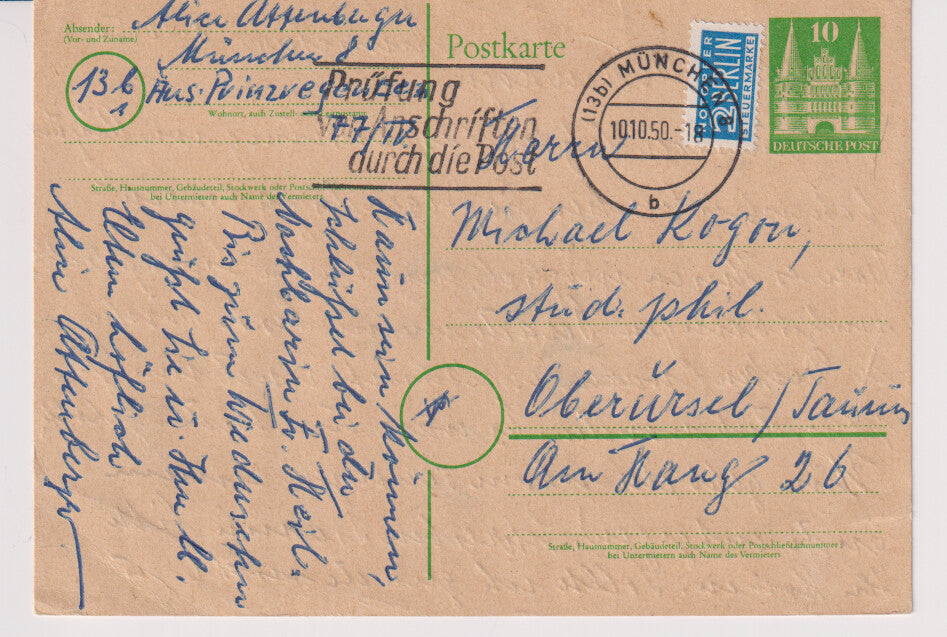 Absender:
(Vor- und Zuname)
Alice Attenberger
München 8
13b
Äuß. Prinzregenten
Wohnort, auch Zustell-
77/IV
Straße, Hausnummer, Gebäudeteil, Stockwerk oder Postsch
bei Untermietern auch Name des Vermieters
Postkarte
Prüfung
der Anschriften
durch die Post
(13b) MÜNCHEN
10.10.50.-18
b
NOTOPFER
2 BERLIN
STEUERMARKE
10
DEUTSCHE POST
Herrn
Michael Kogon,
stud. phil.
Oberursel/Taunus
Am Hang 26
Straße, Hausnummer, Gebäudeteil, Stockwerk oder Postschließfachnummer;
bei Untermietern auch Name des Vermieters
Kann sein können,
Schlüssel bei der
Nachbarin Fr. Heil.
Bis zum Wiedersehn
grüßt Sie u. Ihre lb.
Eltern höflich
Alice Attenberger